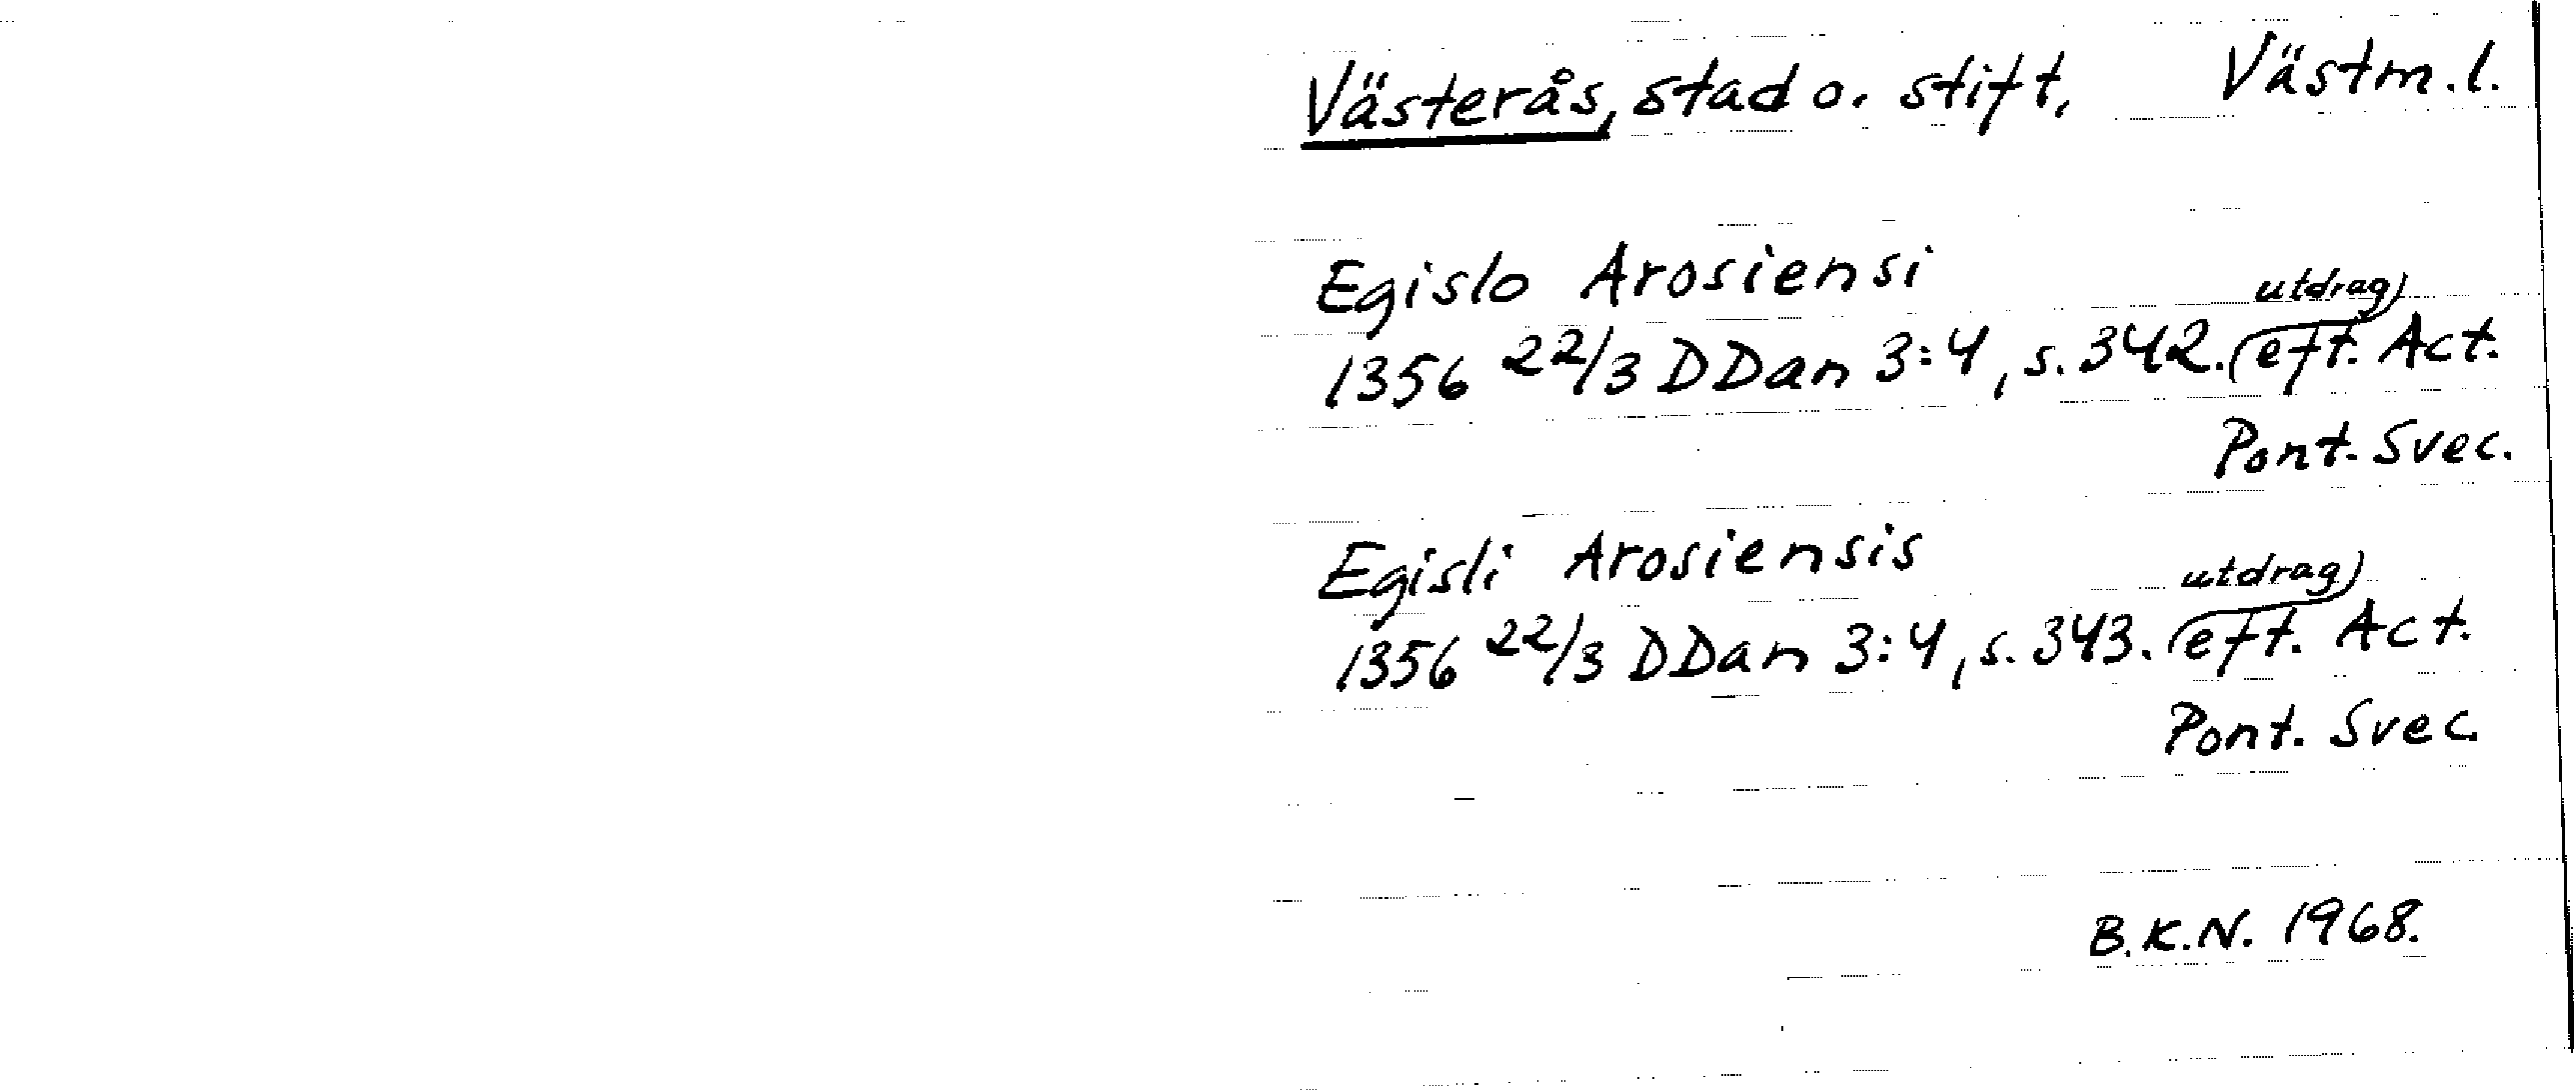 Västerås, stad o. stift, Västm.l.
Egislo Arosiensi
1356 22/3 DDan 3:4, s. 342. utdrag eft. Act.
Pont. Svec.
Egisli Arosiensis
1356 22/3 DDan 3:4, s. 343. utdrag eft. Act.
Pont. Svec.
B.K.N. 1968.